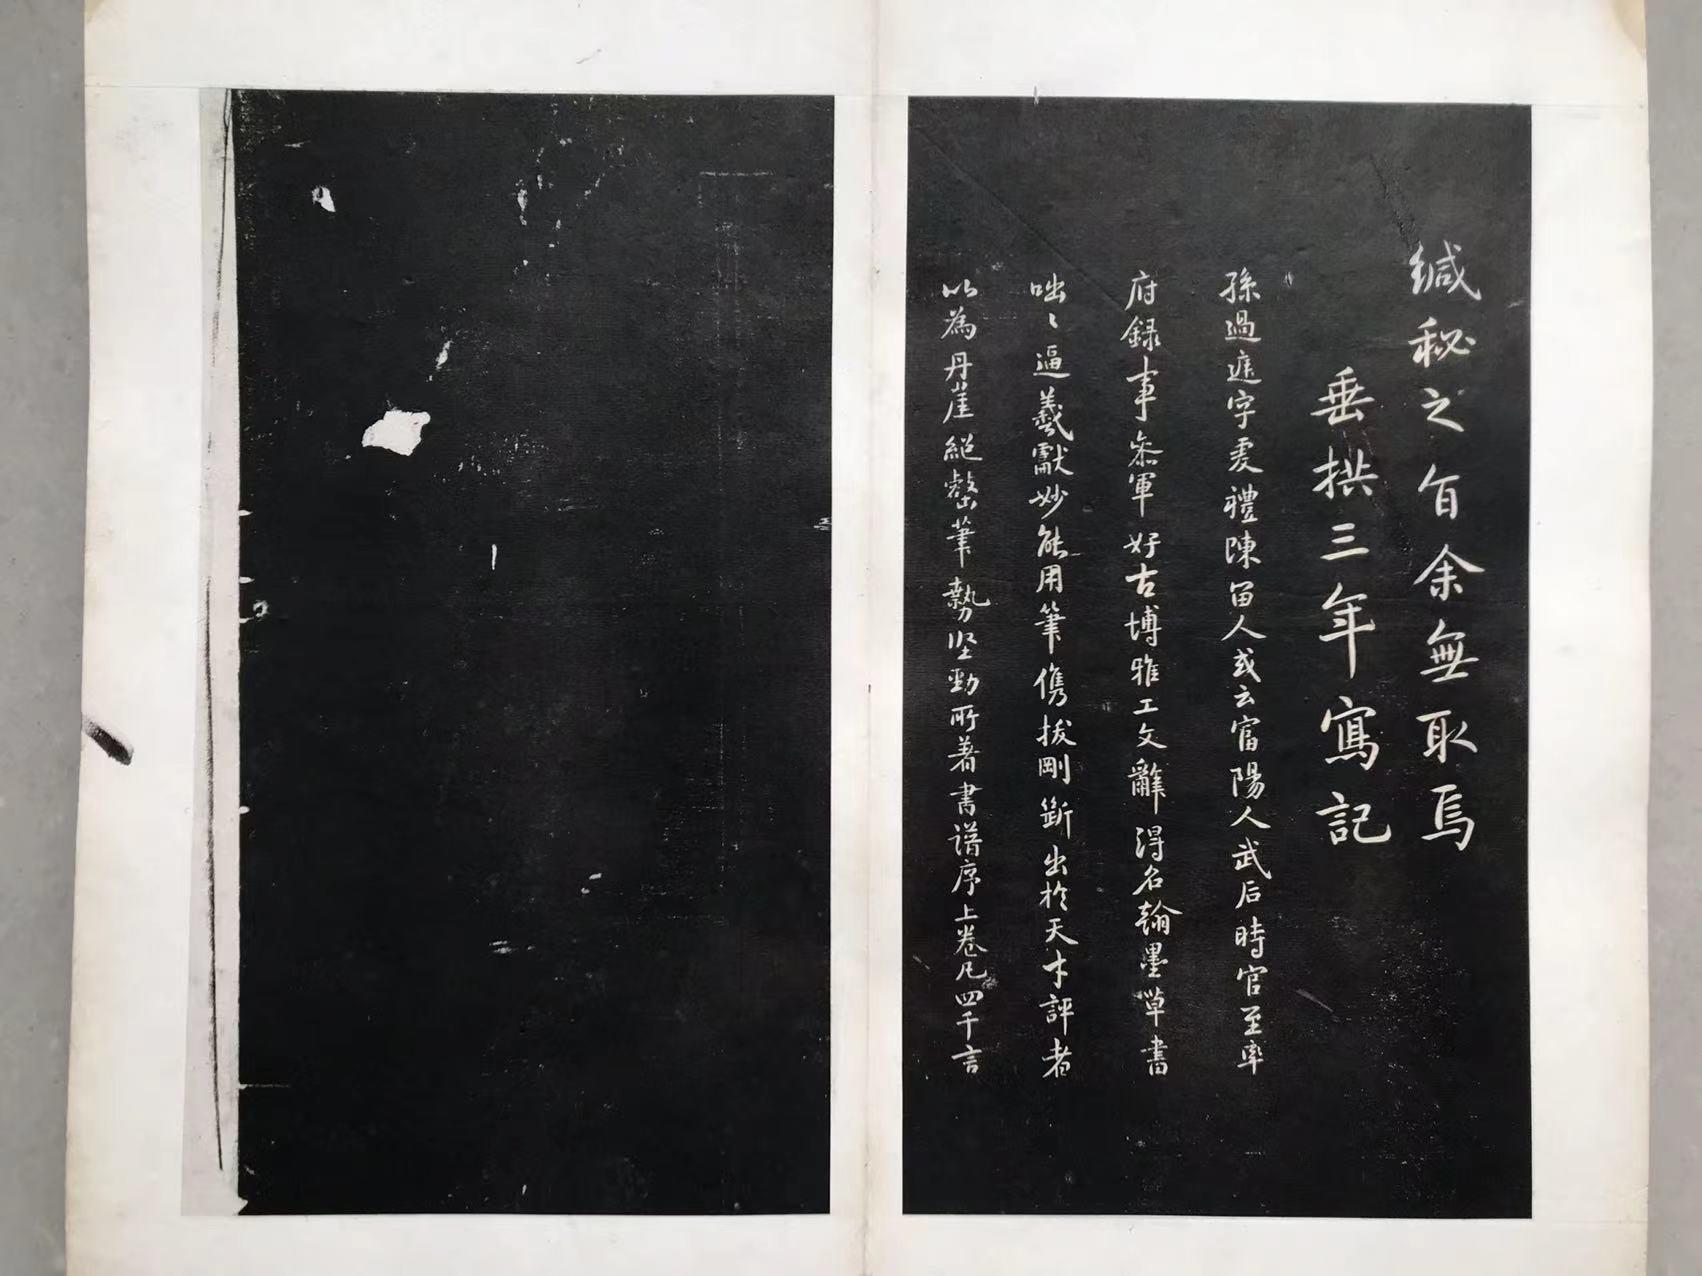 緘秘之旨余無取焉
垂拱三年寫記
孫過庭字虔禮陳留人或云富陽人武后時官至率
府錄事叅軍好古博雅工文辭得名翰墨草書
咄〻逼羲獻妙能用筆儁拔剛斷出於天才評者
以為丹崖絕壑筆勢堅勁所著書譜序上卷凡四千言